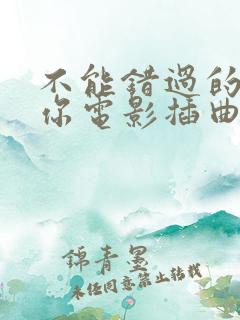 不能錯過的
你電影插曲
錦青墨
未經同意禁止轉載